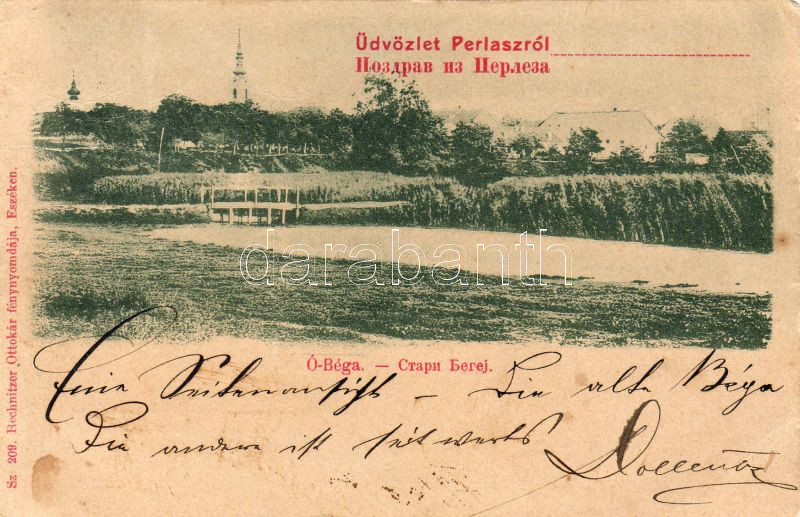 Üdvözlet Perlaszról
Поздрав из Перлеза
darabanth
Ó-Béga. — Стари Бегеј.
Eine Seitenansicht – Die alte Béga
Die andere ist seitwerts
Sz 209. Rechnitzer Ottokár fénynyomdája, Eszéken.